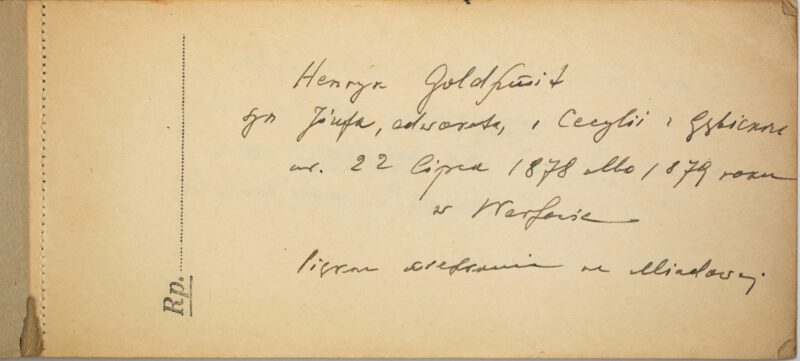 Henryk Goldszmit
syn Józefa, adwokata, i Cecylii z Gębickich
ur. 22 lipca 1878 albo 1879 roku
w Warszawie
Piękne mieszkanie na Miodowej
Rp.